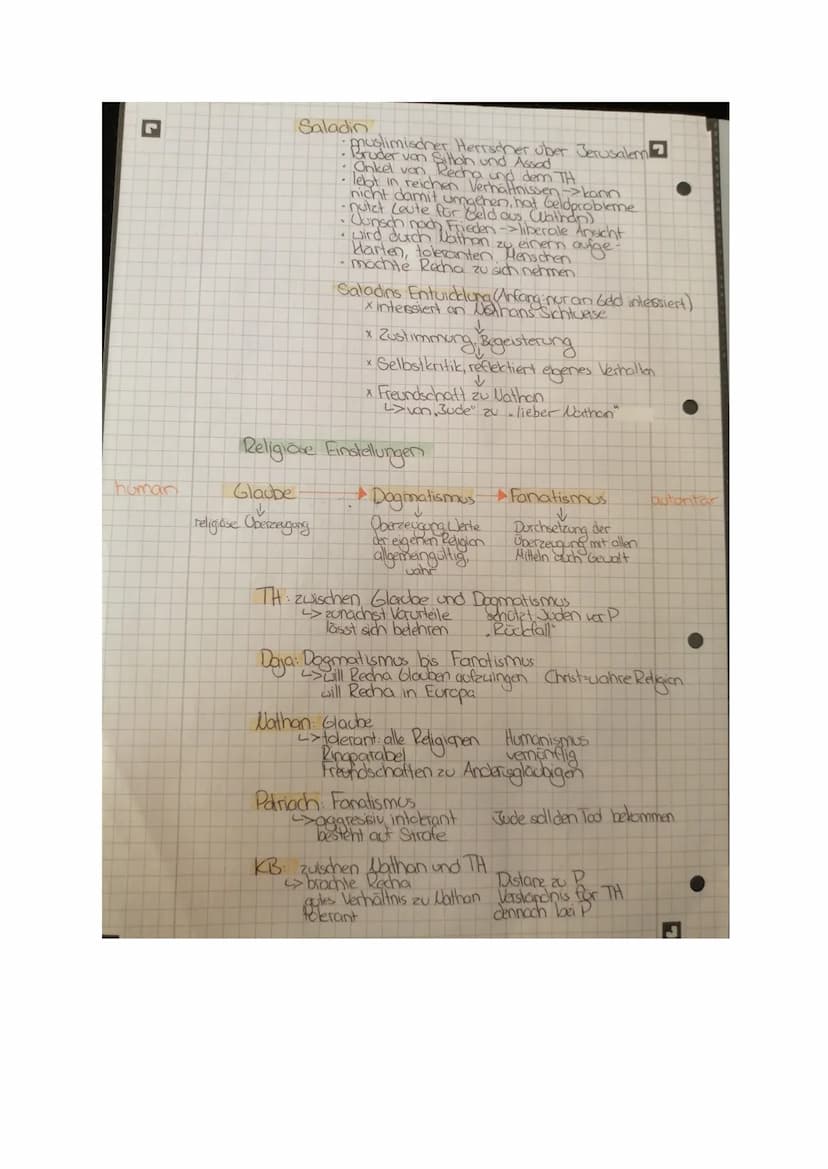 Saladin
· muslimischer Herrscher über Jerusalem
· Bruder von Sittah und Assad
· Onkel von Recha und dem TH
· lebt in reichen Verhältnissen -> kann
nicht damit umgehen, hat Geldprobleme
· nutzt Leute für Geld aus (Nathan)
· Wunsch nach Frieden -> liberale Ansicht
· wird durch Nathan zu einem aufge-
klärten, toleranten Menschen
· möchte Recha zu sich nehmen
Saladins Entwicklung (Anfang: nur an Geld interessiert)
x interssiert an Nathans Sichtweise
↓
x Zustimmung, Begeisterung
↓
x Selbstkritik, reflektiert eigenes Verhalten
↓
x Freundschaft zu Nathan
↳ von „Jude" zu „lieber Nathan"
Religiöse Einstellungen
human Glaube → Dogmatismus → Fanatismus autoritär
↓ ↓ ↓
religiöse Überzeugung Überzeugung Werte Durchsetzung der
der eigenen Religion Überzeugung mit allen
allgemeingültig, Mitteln auch Gewalt
wahr
TH: zwischen Glaube und Dogmatismus
↳ zunächst Vorurteile schützt Juden vor P
lässt sich belehren „Rückfall"
Daja: Dogmatismus bis Fanatismus
↳ will Recha Glauben aufzwingen Christ=wahre Religion
will Recha in Europa
Nathan: Glaube
↳ tolerant: alle Religionen Humanismus
Ringparabel vernünftig
Freundschaften zu Andersgläubigen
Patriach: Fanatismus
↳ aggressiv, intolerant Jude soll den Tod bekommen
besteht auf Strafe
KB: zwischen Nathan und TH
↳ brachte Recha Distanz zu P
gutes Verhältnis zu Nathan Verständnis für TH
tolerant dennoch bei P